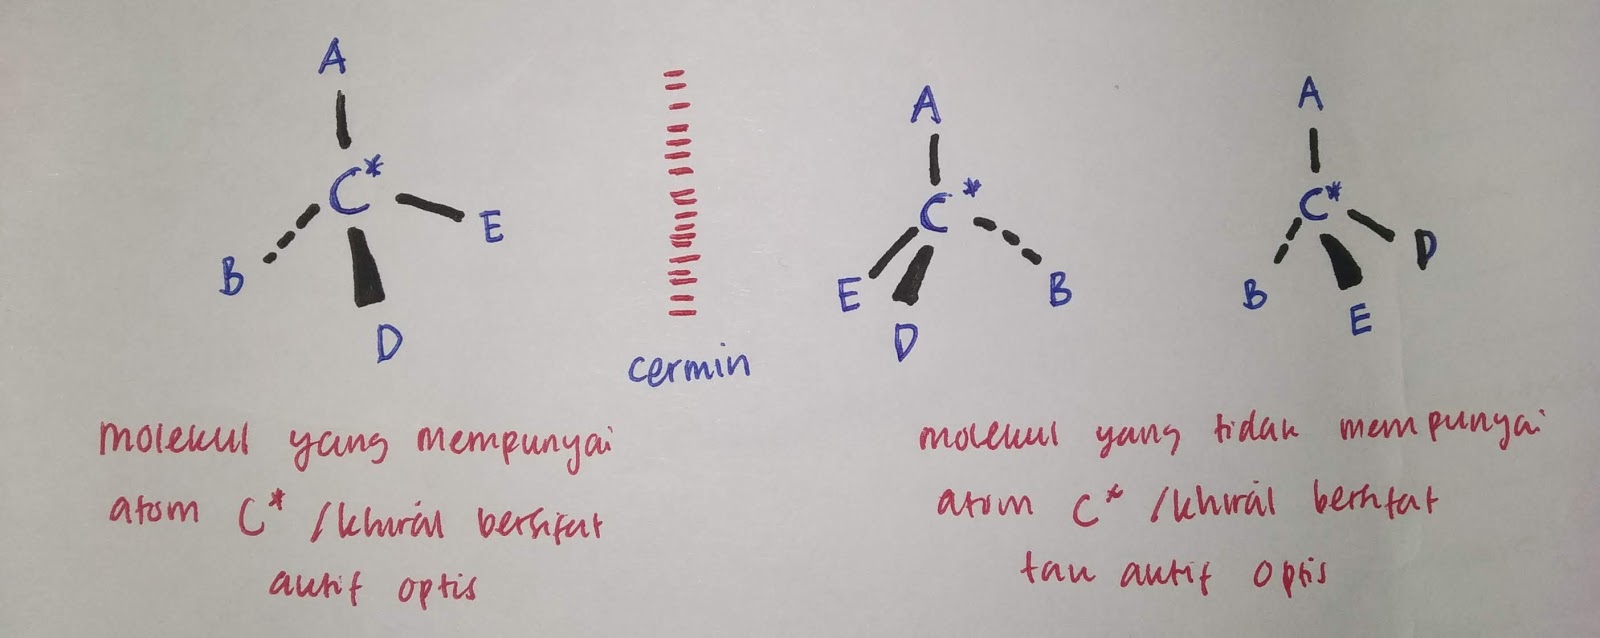 A
C*
B
E
D
cermin
A
C*
E
D
B
A
C*
B
E
D
molekul yang mempunyai
atom C* /khiral bersifat
aktif optis
molekul yang tidak mempunyai
atom C* /khiral bersifat
tak aktif optis